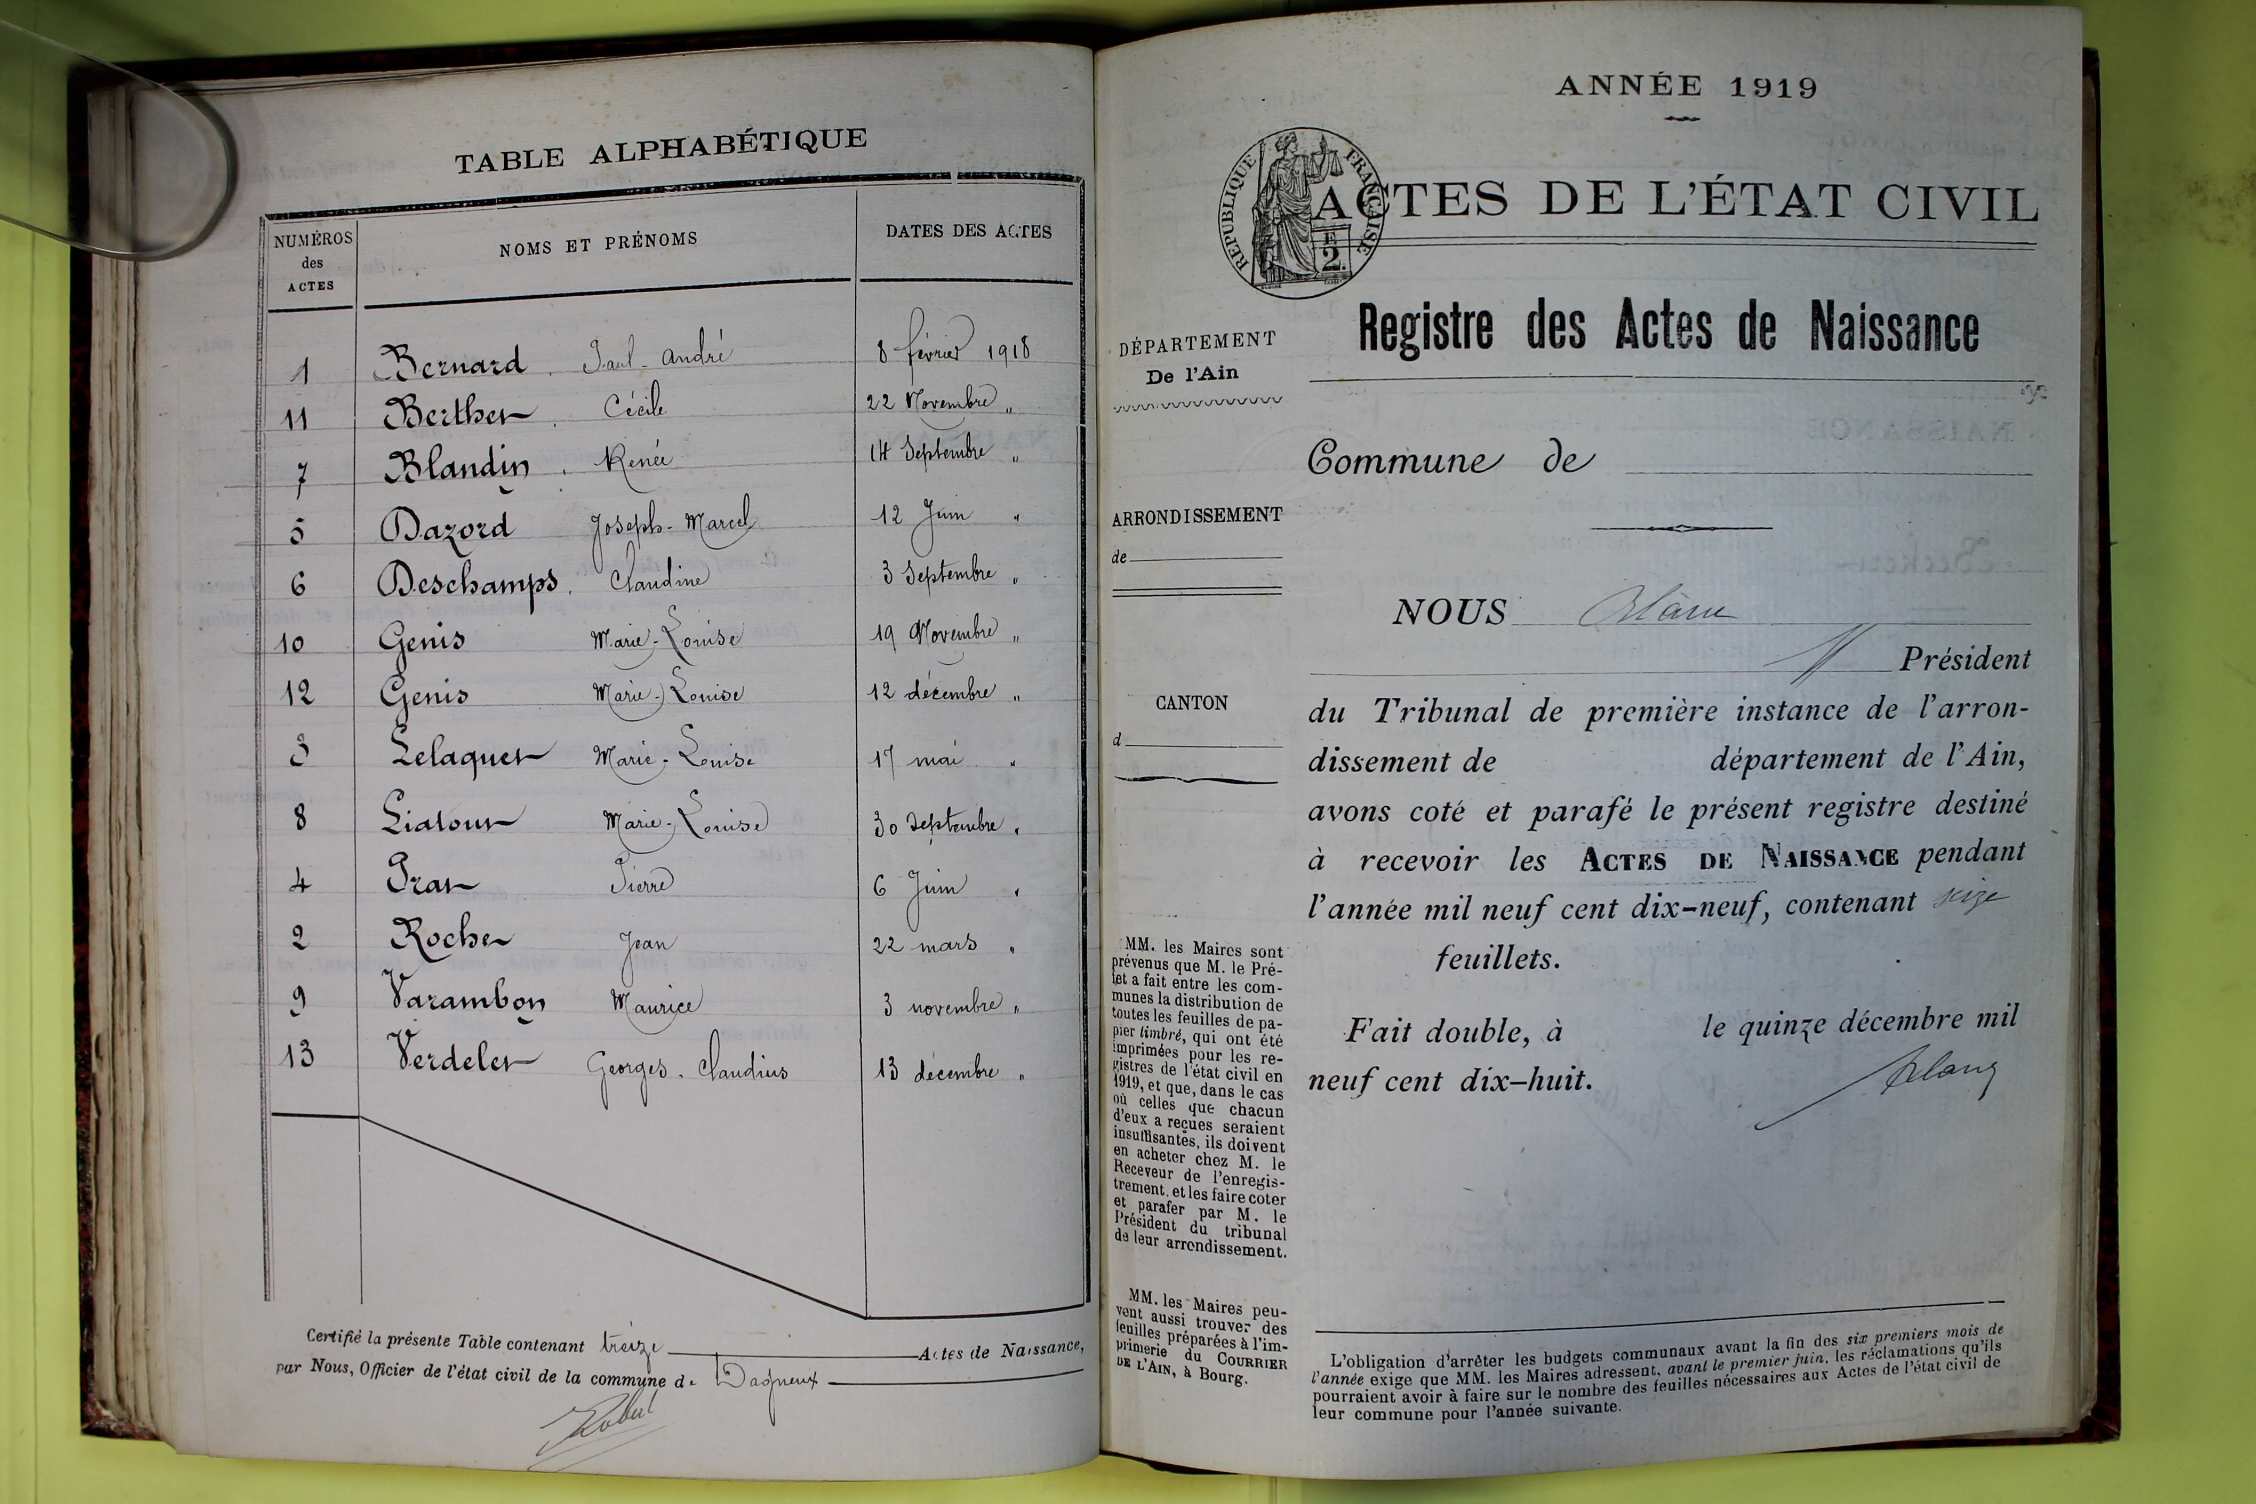 TABLE ALPHABÉTIQUE
NUMÉROS des ACTES NOMS ET PRÉNOMS DATES DES ACTES
1 Bernard Paul-André 8 février 1918
11 Berthet Cécile 22 Novembre "
7 Blandin Renée 14 Septembre "
5 Dazord Joseph-Marcel 12 Juin "
6 Deschamps Claudine 3 Septembre "
10 Genis Marie-Louise 19 Novembre "
12 Genis Marie-Louise 12 décembre "
3 Lelaquet Marie-Louise 17 mai "
8 Liatout Marie-Louise 30 Septembre "
4 Prat Pierre 6 Juin "
2 Roche Jean 22 mars "
9 Varambon Maurice 3 novembre "
13 Verdelet Georges-Claudius 13 décembre "
Certifié la présente Table contenant treize Actes de Naissance,
par Nous, Officier de l'état civil de la commune de Dagneux
ANNÉE 1919
RÉPUBLIQUE FRANÇAISE
2
ACTES DE L'ÉTAT CIVIL
Registre des Actes de Naissance
DÉPARTEMENT
De l'Ain
Commune de
ARRONDISSEMENT
de
NOUS
Président
CANTON
d
du Tribunal de première instance de l'arron-
dissement de département de l'Ain,
avons coté et parafé le présent registre destiné
à recevoir les ACTES DE NAISSANCE pendant
l'année mil neuf cent dix-neuf, contenant seize
feuillets.
Fait double, à le quinze décembre mil
neuf cent dix-huit.
MM. les Maires sont
prévenus que M. le Pré-
fet a fait entre les com-
munes la distribution de
toutes les feuilles de pa-
pier timbré, qui ont été
imprimées pour les re-
gistres de l'état civil en
1919, et que, dans le cas
où celles que chacun
d'eux a reçues seraient
insuffisantes, ils doivent
en acheter chez M. le
Receveur de l'enregis-
trement, et les faire coter
et parafer par M. le
Président du tribunal
de leur arrondissement.
MM. les Maires peu-
vent aussi trouver des
feuilles préparées à l'im-
primerie du COURRIER
DE L'AIN, à Bourg.
L'obligation d'arrêter les budgets communaux avant la fin des six premiers mois de
l'année exige que MM. les Maires adressent, avant le premier juin, les réclamations qu'ils
pourraient avoir à faire sur le nombre des feuilles nécessaires aux Actes de l'état civil de
leur commune pour l'année suivante.